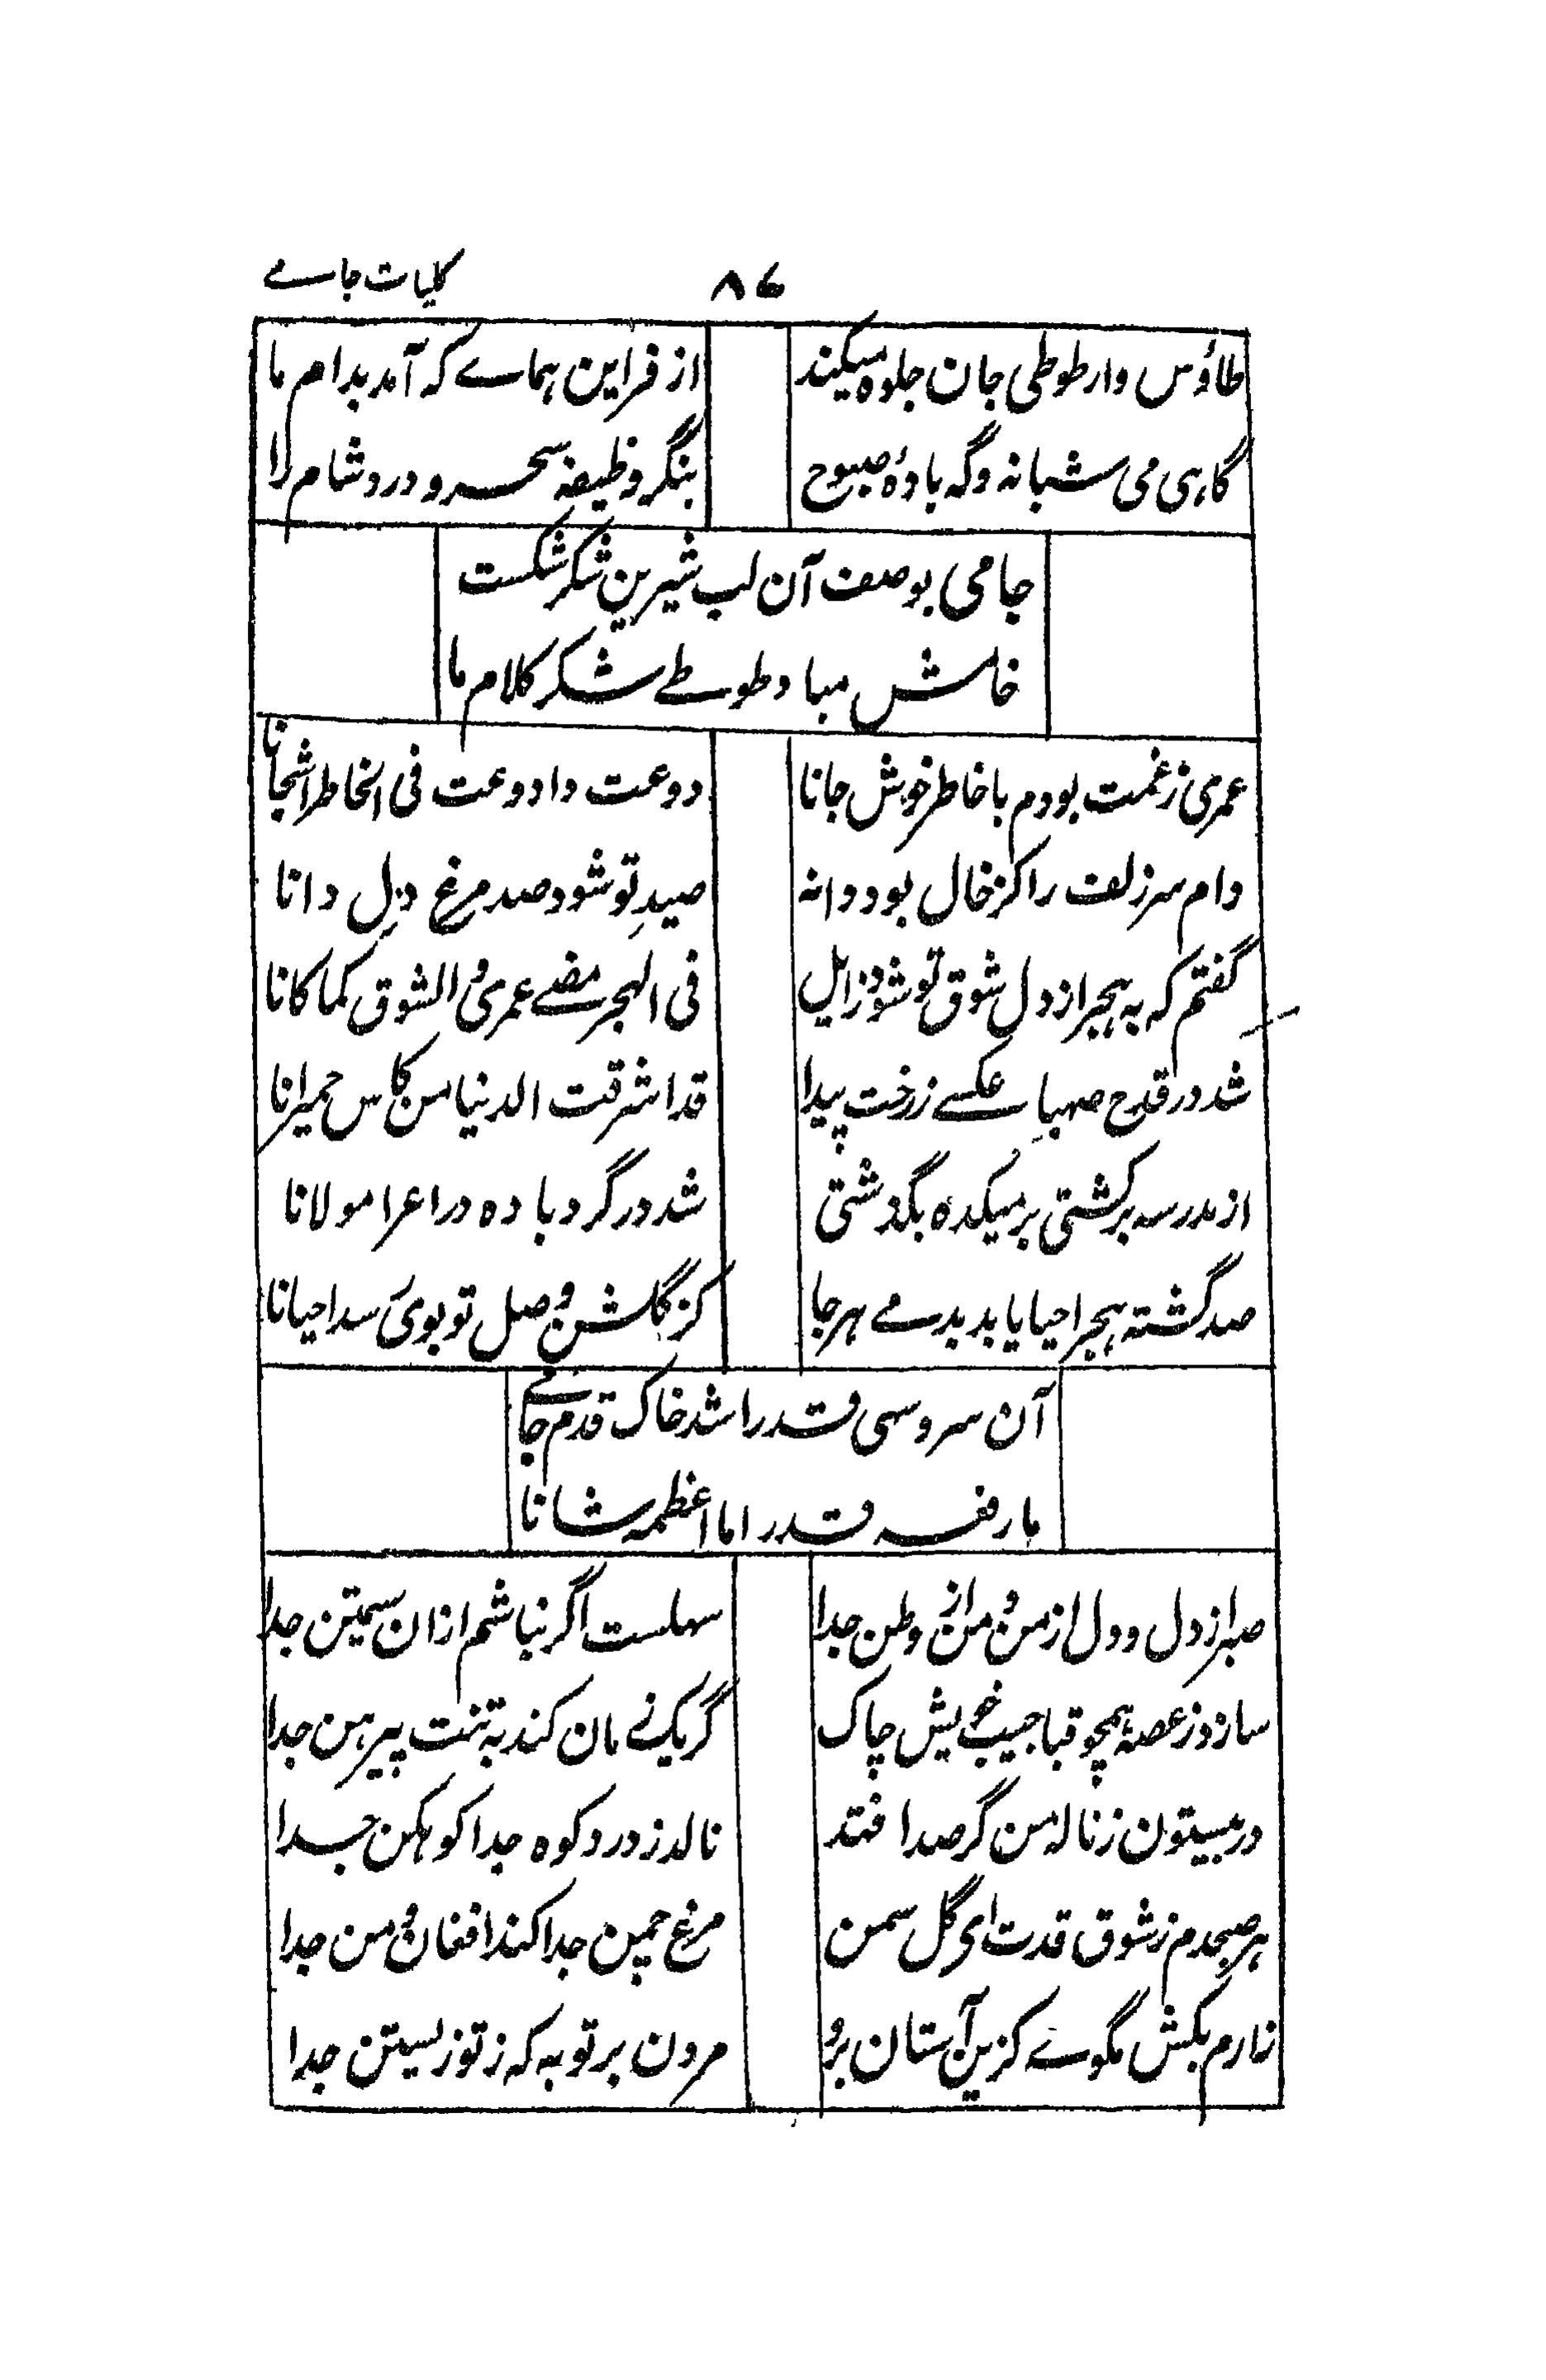 کلیات جامے
۸۶
طاؤس وار طوطی جان جلوہ میکند
از فر این ہماے کہ آمد بدام ما
گاہی می شبانہ وگہ بادۂ صبوح
بنگر وظیفۂ سحر و درد شام را
جامی بوصف آن لب شیرین شکر شکست
خامش مباد طوطے شکر کلام ما
عمری ز غمت بودم با خاطر خوش جانا
ودعت دادوعت فی الخاطر اشجانا
دام سر زلفت را کز خال بود دانہ
صیدِ تو شود صد مرغ دلِ دانا
گفتم کہ بہ ہجر از دل شوق تو شود زایل
فی الہجر مضے عمری و الشوق کما کانا
شد در قدح صہبا عکسے ز رخت پیدا
قد اشرقت الدنیا من کاس حمیرانا
از مدرسہ برگشتی بر میکدہ بگذشتی
شد در گرد بادہ دراعرا مولانا
صد گشتہ ہجر احیا یابد بدمے ہرجا
کز گلشن وصل تو بوی رسد احیانا
آن سرو سہی قد را شد خاک قدم جامے
مارفعہ قدرا ما اعظمہ شانا
صبر از دل و دل از من و من از وطن جدا
سہلست اگر نباشم ازان سیمتن جدا
سازد ز غصہ ہمچو قبا جیب خویش چاک
گر یک زمان کند بہ تنت پیرہن جدا
در بیستون ز نالہ من گر صدا فتد
نالد ز درد کوہ جدا کوہکن جدا
ہر صبحدم ز شوق قدت ای گل سمن
مرغ چمن جدا کند افغان و من جدا
زارم بکش مگوے کزین آستان برو
مردن بر تو بہ کہ ز تو زیستن جدا